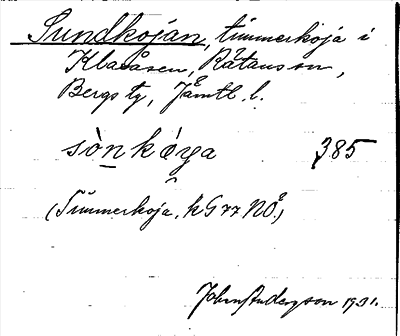 Sundkojan, timmerkoja i
Klasåsen, Rätans sn,
Bergs tg, Jämtl. l.
sòn kóya 385
(Timmerkoja, k G 77 NÖ)
John Andersson 1931.